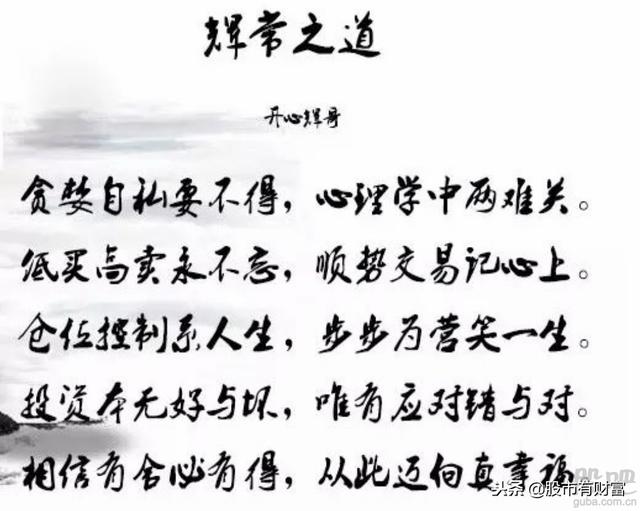 辉常之道
开心辉哥
贪婪自私要不得，心理学中两难关。
低买高卖永不忘，顺势交易记心上。
仓位控制系人生，步步为营笑一生。
投资本无好与坏，唯有应对错与对。
相信有舍必有得，从此迈向真幸福
头条@股市有财富
guba.com.cn